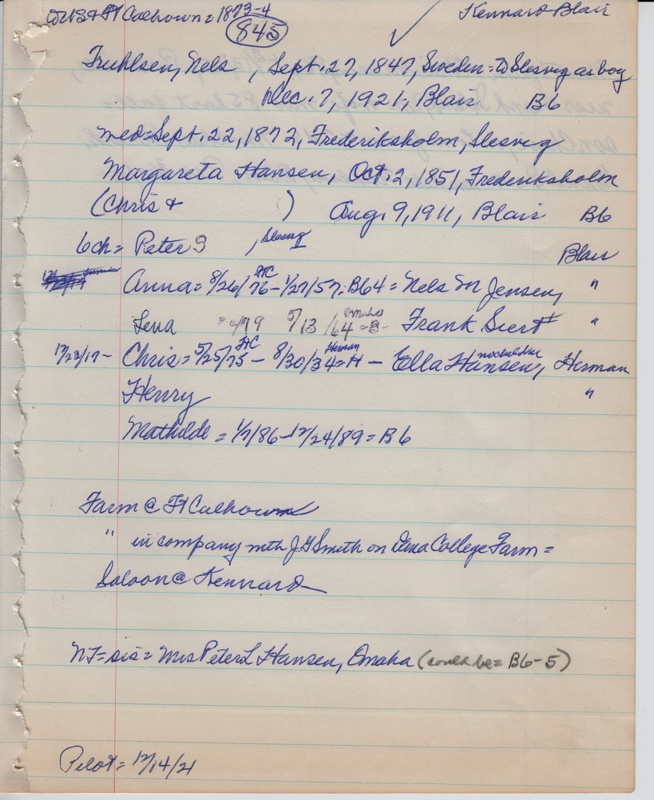 US & Ft Calhoun = 1873-4
845
Kennard-Blair
Fruhlsen, Nels, Sept. 27, 1847, Sweden = to Slesvig as boy
Dec. 7, 1921, Blair B6
med = Sept. 22, 1872, Frederiksholm, Slesvig
Margareta Hansen, Oct. 2, 1851, Frederiksholm
(Chris & ) Aug. 9, 1911, Blair B6
6 ch = Peter 9, Slesvig Blair
Anna = 8/26/76 - 1/27/57, B64 = Nels M Jensen, "
FtC
Lena = 4/79 5/13/64 = B - Frank Siert "
Omaha
12/23/17 - Chris = 5/25/75 - 8/30/34 = H - Ella Hansen, Herman
FtC Herman no children
Henry "
Mathilde = 1/7/86 - 12/24/89 = B6
Farm @ Ft Calhoun
" in company with J G Smith on Dana College Farm =
Saloon @ Kennard
NF = sis = Mrs Peter L Hansen, Omaha (could be = B6-5)
Pilot = 12/14/21